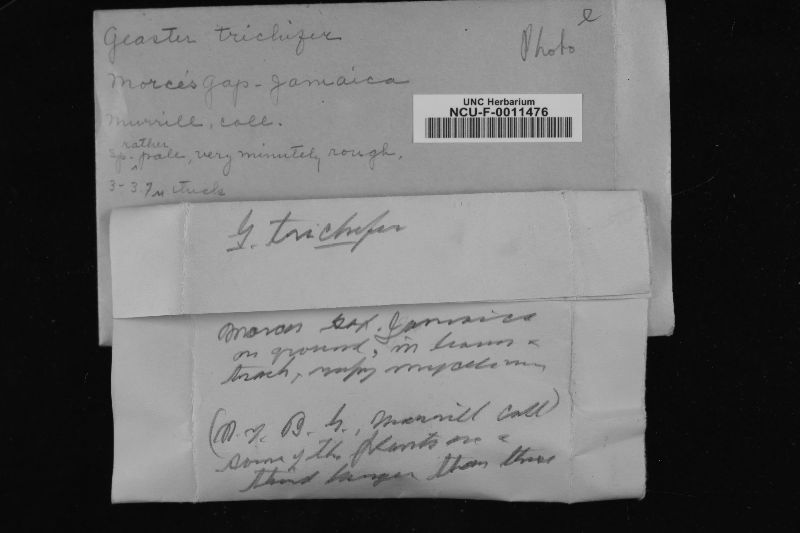 Geaster trichifer
Photo e
Morce's Gap - Jamaica
UNC Herbarium
NCU-F-0011476
Murrill, coll.
rather
sp. pale, very minutely rough,
3-3.7µ thick
G. trichifer
Morces Gap, Jamaica
on ground, in leaves &
trash, mycelium
(N.Y. B. G., Murrill Coll)
some of the plants are a
third larger than these